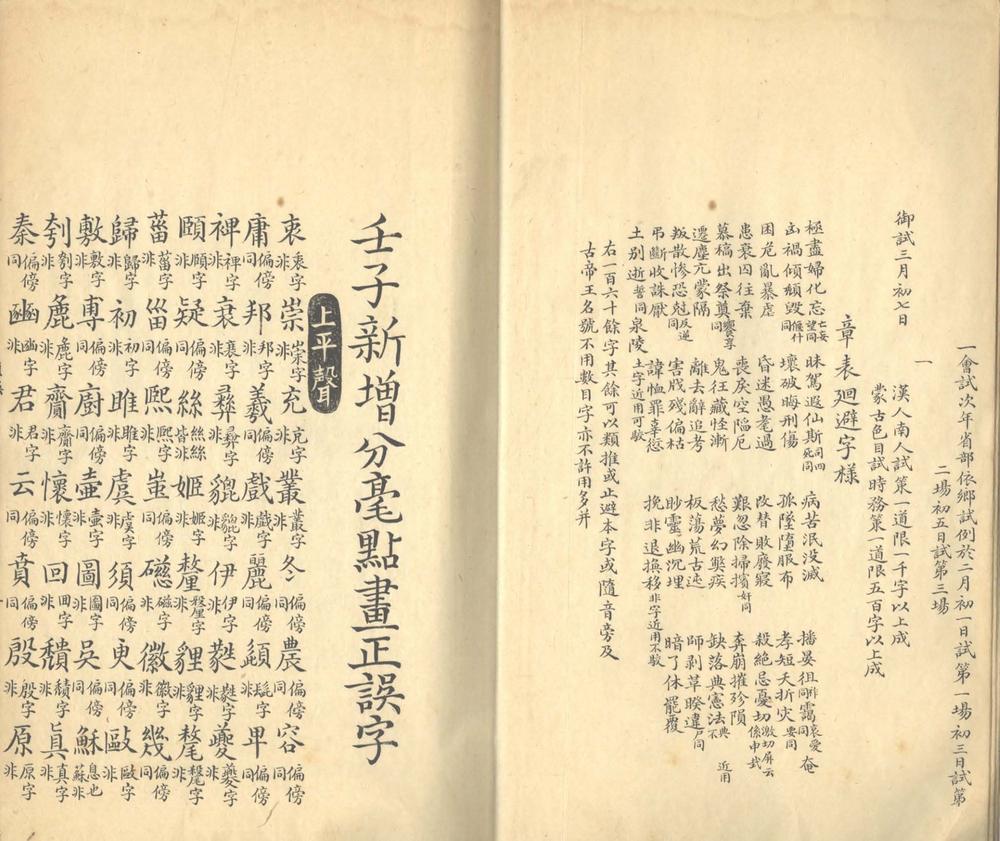 一會試次年省部依鄉試例於二月初一日試第一場初三日試第
二場初五日試第三場
一
御試三月初七日
漢人南人試策一道限一千字以上成
蒙古色目試時務策一道限五百字以上成
章表廻避字樣
極盡婦化忘亡妄望同 昧駕遐仙斯司四死同 病苦泯没滅 播晏徂靄哀愛同奄
凶禍傾頹毀偃仆同 壞破晦刑傷 孤墜墮服布 孝短夭折灾要同
困危亂暴虐 昏迷愚耄過 改替敗廢寢 殺絶忌憂切激切屏云係申
患衰囚往棄 喪戾空陷厄 艱忽除掃擯奸同 奔崩摧殄隕
慕稿出祭奠饗尊同 鬼狂藏怪漸 愁夢幻弊疾 缺落典憲法典不近用
遷塵亢蒙隔 離去辭追考 板蕩荒古迍 師剥革睽違尸同
叛散慘恐尅反逆 害戕殘偏枯 眇靈幽沉埋 暗了休罷覆
弔斷收誅厭 諱恤罪辜愆 挽非退換移非字近用不駁
土别逝誓同泉陵土字近用可駁
右一百六十餘字其餘可以類推或止避本字或隨音旁及
古帝王名號不用數目字亦不許用多并
壬子新增分毫點畫正誤字
上平聲
衷非衷字 崇非崇字 充非充字 叢非叢字 冬偏傍同 農偏傍同 容偏傍同
庸偏傍同 邦非邦字 羲偏傍同 戲非戲字 麗偏傍同 卑偏傍同
裨非裨字 衰非衰字 彝非彝字 貔非貔字 伊非伊字 夔非夔字
頤非頤字 疑偏傍同 絲絲絲皆非 姬非姬字 狸非狸字
菑非菑字 甾偏傍同 熙非熙字 蚩偏傍同 磁非磁字 徽非徽字 幾偏傍同
歸非歸字 初非初字 雎非雎字 虞非虞字 須偏傍同 臾偏傍同 毆非毆字
敷非敷字 尃偏傍同 廚偏傍同 壺非壺字 圖非圖字 吳偏傍同 穌息也蘇非
刳非刳字 麄非麄字 齎非齎字 懷非懷字 回非囬字 真非真字
秦偏傍同 豳非豳字 君非君字 云偏傍同 賁偏傍同 殷非殷字 原非原字